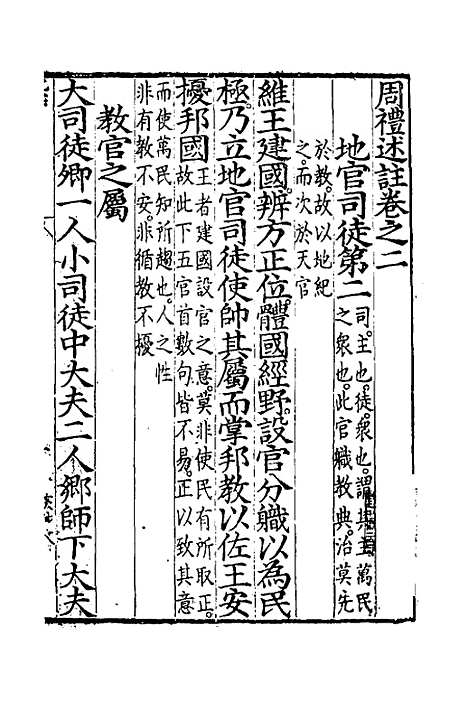 周禮述註卷之二
地官司徒第二 司。主也。徒。衆也。謂其主萬民
之衆也。此官職教典。治莫先
於教。故以地紀
之。而次於天官
維王建國。辨方正位。體國經野。設官分職。以為民
極。乃立地官司徒。使帥其屬而掌邦教。以佐王安
擾邦國 王者建國設官之意。莫非使民有所取正。
故此下五官首數句皆不易。正以致其意
而使萬民知所趨也。人之性
非有教不安。非循教不擾
教官之屬
大司徒卿一人小司徒中大夫二人鄉師下大夫